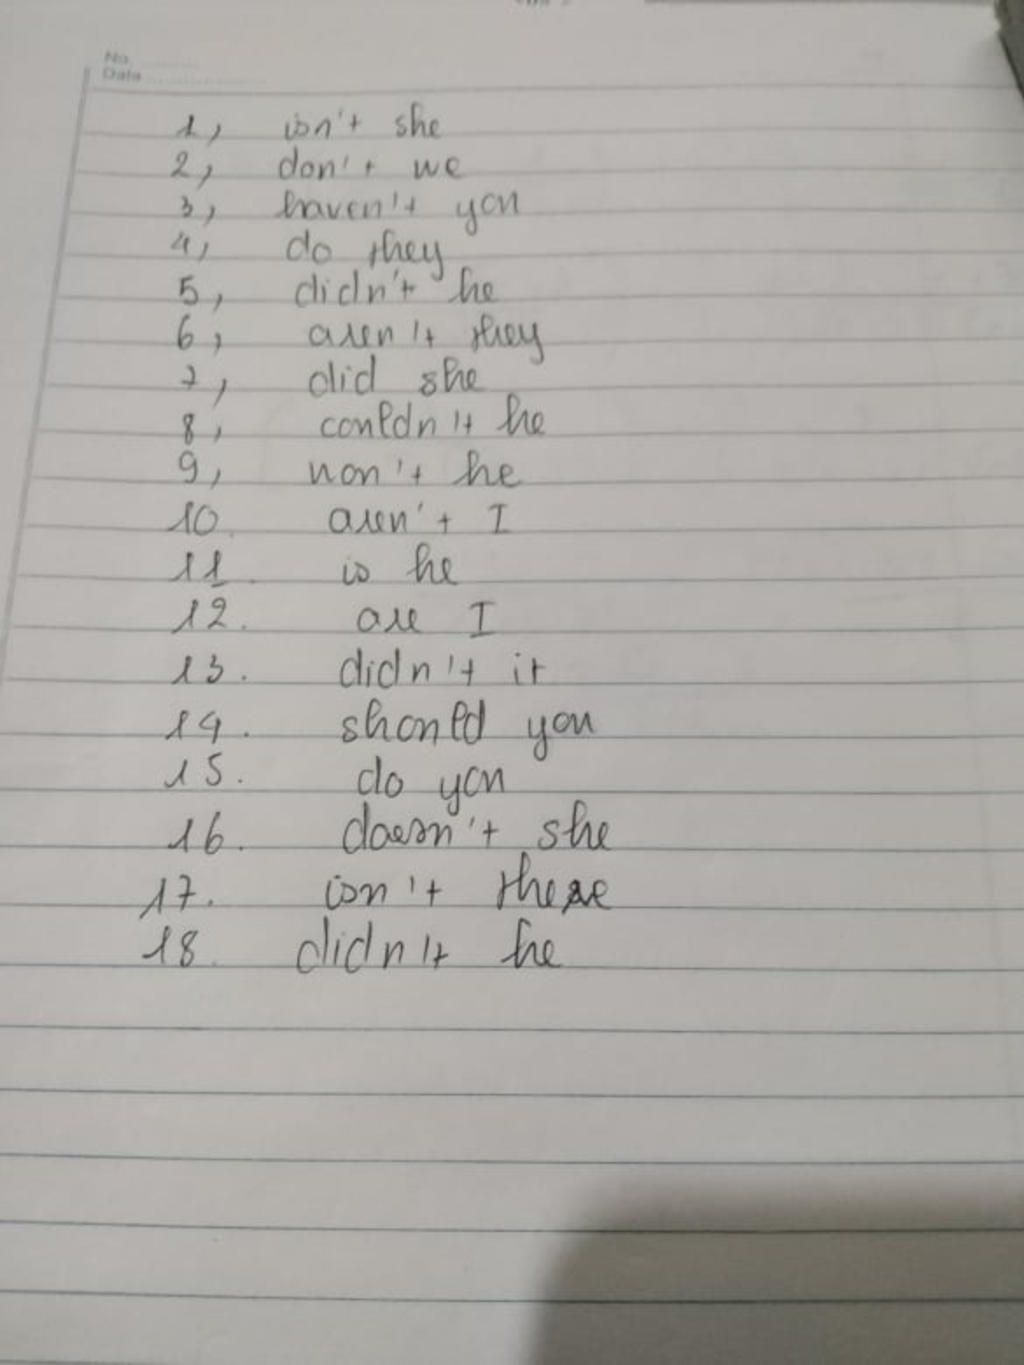 No.
Date
1, isn't she
2, don't we
3, haven't you
4, do they
5, didn't he
6, aren't they
7, did she
8, couldn't he
9, won't he
10. aren't I
11. is he
12. are I
13. didn't it
14. should you
15. do you
16. doesn't she
17. isn't there
18. didn't he